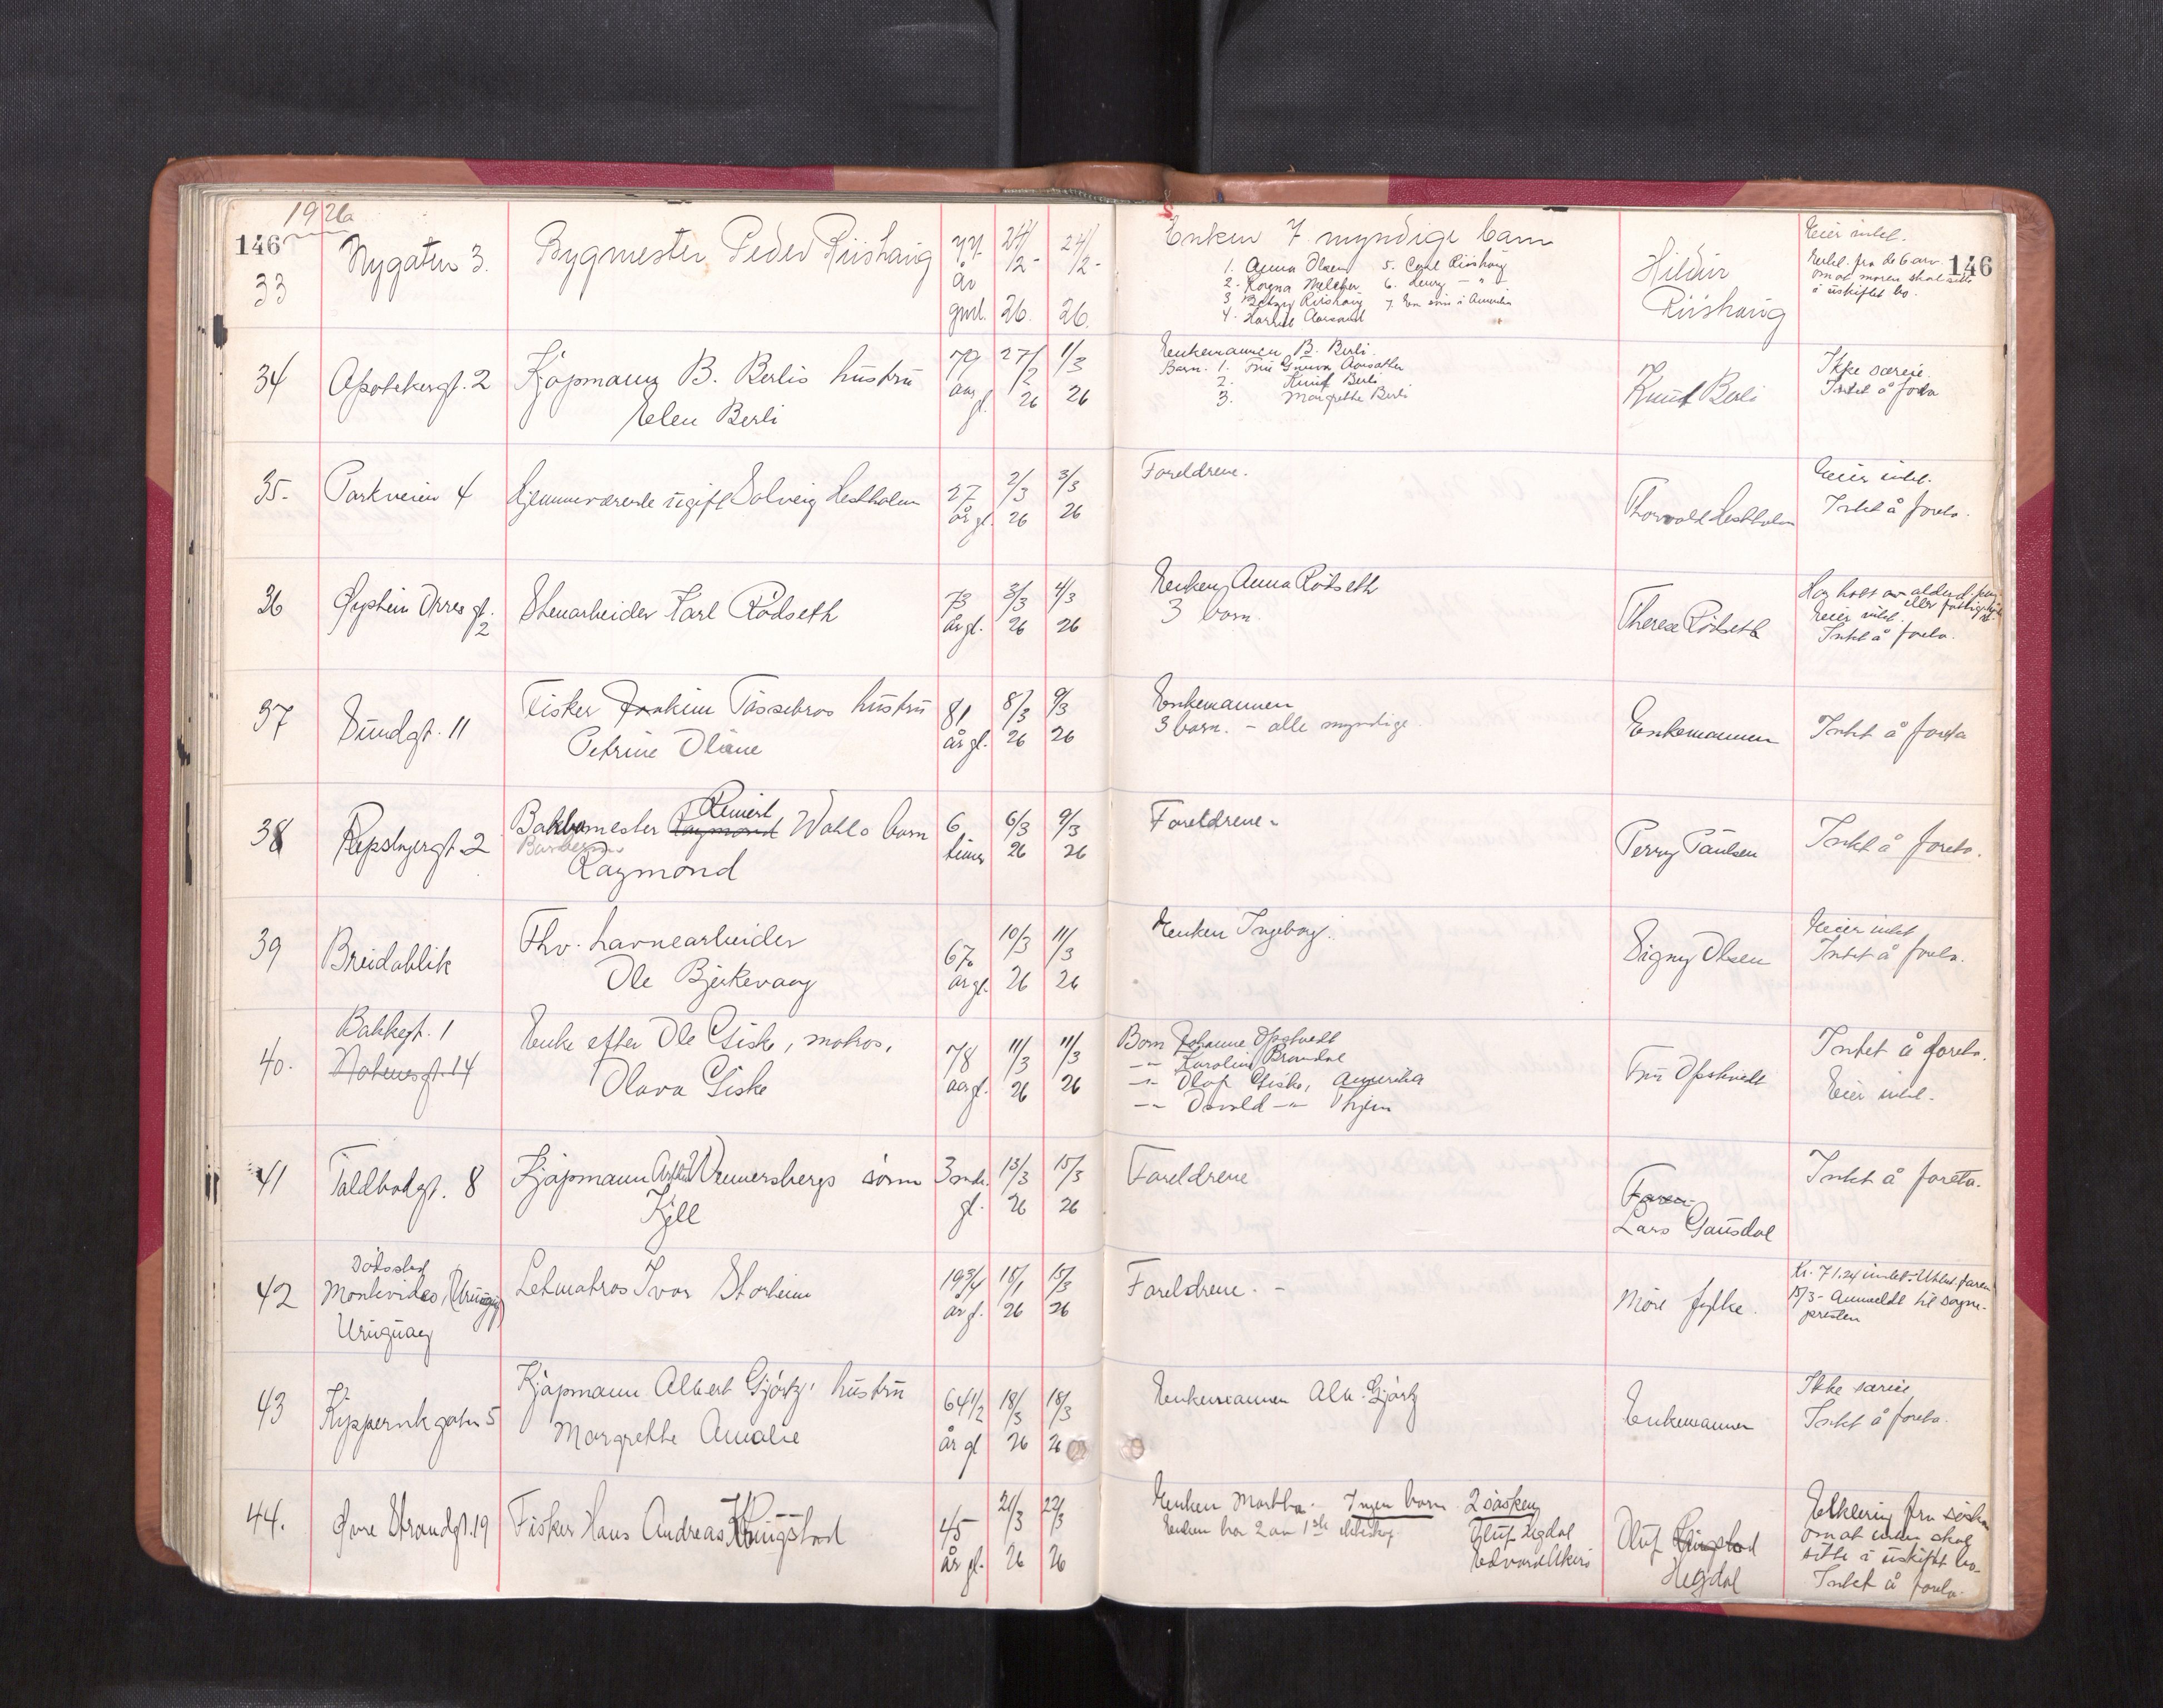 1926
146
33
Nygaten 3.
Bygmester Peder Riishaug
77 år gml.
24/2 - 26.
24/2 - 26.
Enken 7 myndige barn
1. Anna Olsen 5. Carl Riishaug
2. Ragna 6. Henry - " -
3. Betzy Riishaug 7. En søn i Amerika
4. Harriet Aarsund
Hildur
Riishaug
Eier intet.
Erkl. fra de 6 arv.
om at moren skal sitte
i uskiftet bo.
146
34
Apotekergt. 2
Kjøpmann B. Berlis hustru
Elen Berli
79 aar gl.
27/2 26
1/3 26
Enkemannen B. Berli.
Barn. 1. Fru Gunva Aarsæther
2. Knut Berli
3. Margrethe Berli
Knut Berli
Ikke særeie.
Intet å foreta
35.
Parkveien 4
Hjemmeværende ugift Solveig Hestholm
27 år gl.
2/3 26
3/3 26
Foreldrene.
Thorvald Hestholm
Eier intet.
Intet å foreta.
36
Øystein Orres gt. 2
Stenarbeider Karl Rødseth
73 år gl.
3/3 26
4/3 26
Enken, Anna Rødseth
3 barn.
Therese Rødseth
Har hatt av alderd.
eller
Eier intet.
Intet å foreta.
37
Sundgt. 11
Fisker Joakim Tässebros hustru
Petrine Oline
81 år gl.
8/3 26
9/3 26
Enkemannen
3 barn. - alle myndige.
Enkemannen
Intet å foreta
38
Repslagergt. 2
Reinert
Bakermester Raymond Wahls barn
Raymond
6 timer
6/3 26
9/3 26
Foreldrene -
Perry Paulsen
Intet å foreta.
39
Breidablik
Fhv. havnearbeider
Ole Bjerkevaag
67 år gl.
10/3 26
11/3 26
Enken Ingeborg.
Signy Olsen
Eier intet
Intet å foreta.
40.
Bakkegt. 1
Enke efter Ole Giske, matros,
Olava Giske
78 aar gl.
11/3 26
11/3 26
Barn Johanne Opstvedt
-"- Karoline Brandal
-"- Olaf Giske, Amerika
-"- Osvald -"- Thjem
Fru Opstvedt
Intet å foreta.
Eier intet.
41
Toldbodgt. 8
Kjøpmann Wennersbergs sønn
Kjell
3 mdr. gl.
13/3 26
15/3 26
Foreldrene
Faren
Lars Gausdal
Intet å foreta.
42
Dødssted
Montevideo,
Uruguay
Letmatros Ivar Storheim
19 3/4 år gl.
15/1 26
15/3 26
Foreldrene. -
Møre fylke.
Kr. 71,24 innbet. - Utbet. faren
15/3 - Anmeldt til sogne-
presten
43
Kippervikgaten 5
Kjøpmann Albert Gjørtz' hustru
Margrethe Amalie
64 1/2 år gl
18/3 26
18/3 26
Enkemannen Alb. Gjørtz
Enkemannen
Ikke særeie
Intet å foreta.
44.
Øvre Strandgt. 19
Fisker Hans Andreas Kongstad
45 år gl.
21/3 26
22/3 26
Enken Martha. Ingen barn. 2 søsken
Enken har 2 av 1ste ekteskap. Oluf Hegdal
Edvard
Oluf
Hegdal
Erklæring fra søsken
om at enken skal
sitte i uskiftet bo.
Intet å foreta.